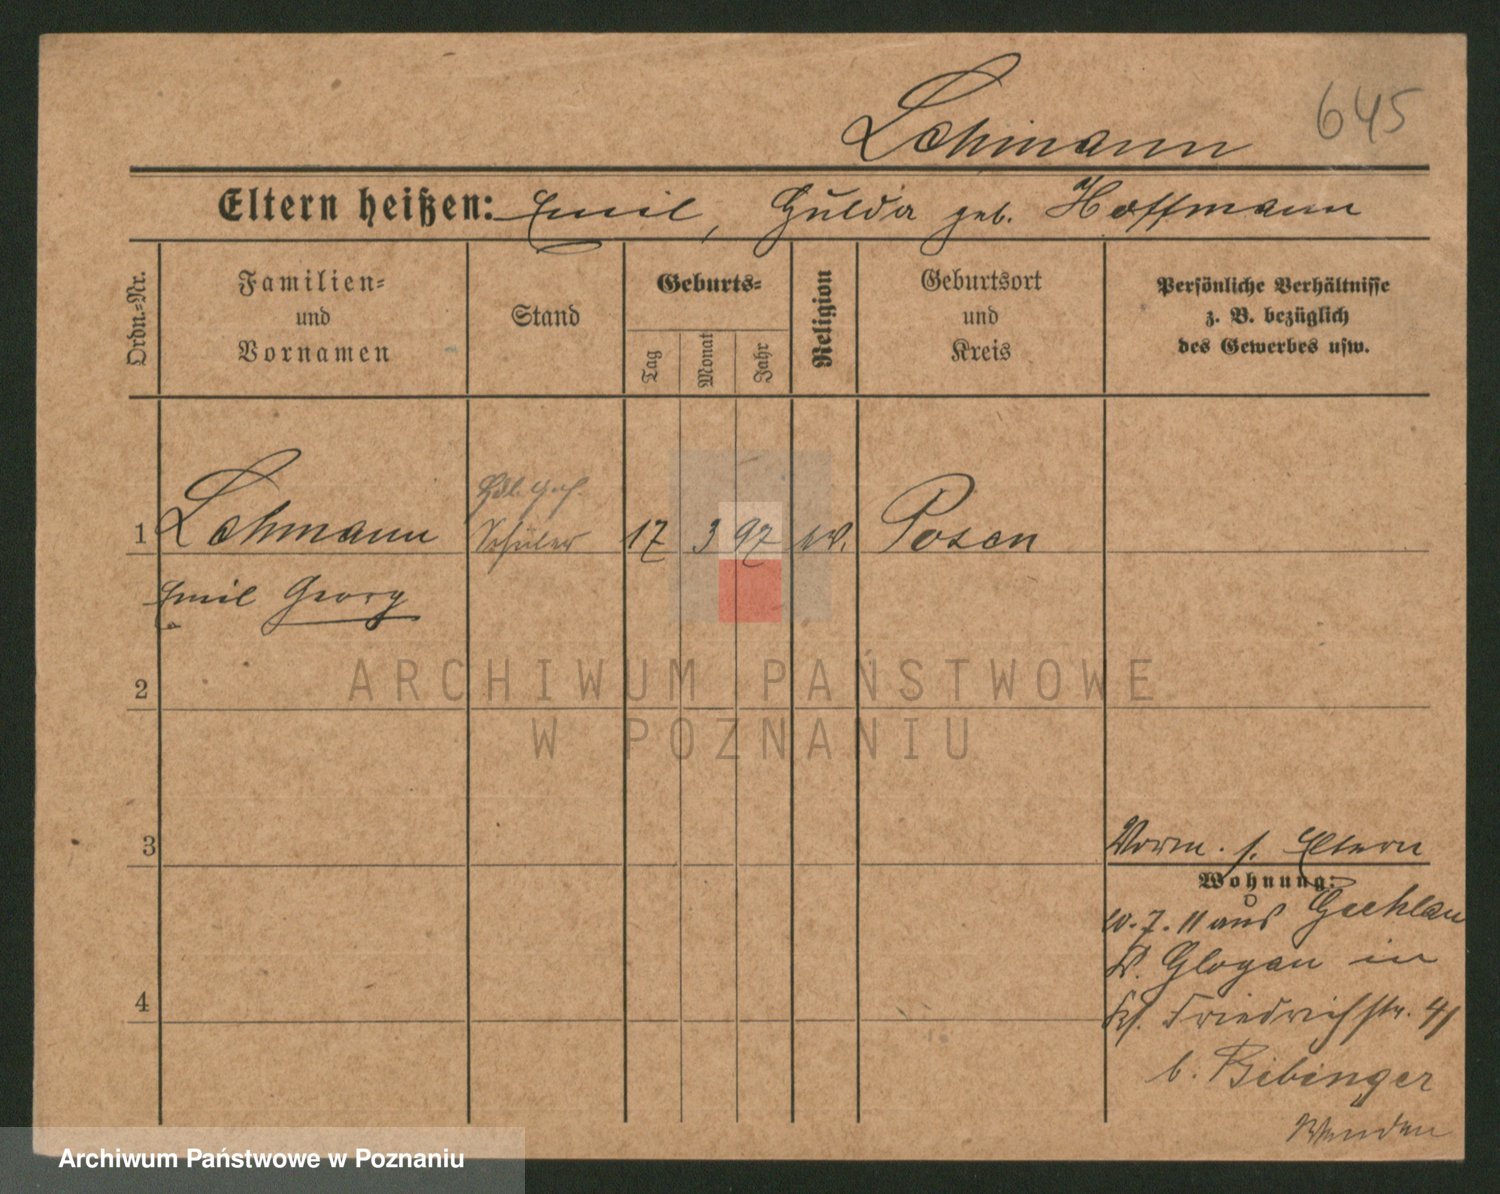 645
Lehmann
Eltern heißen: Emil, Hulda geb. Hoffmann
Ordn.-Nr.
Familien-
und
Vornamen
Stand
Geburts-
Tag
Monat
Jahr
Religion
Geburtsort
und
Kreis
Persönliche Verhältnisse
z. B. bezüglich
des Gewerbes usw.
Hdl. Geh.
1 Lehmann Schüler 17 3 97 ev. Posen
Emil Georg
2
3
Vorm. s. Eltern
Wohnung:
10. 7. 11 aus
K. Glogau in
4
Friedrichstr. 41
b. Bibinger
Wenden
ARCHIWUM PAŃSTWOWE
W POZNANIU
Archiwum Państwowe w Poznaniu